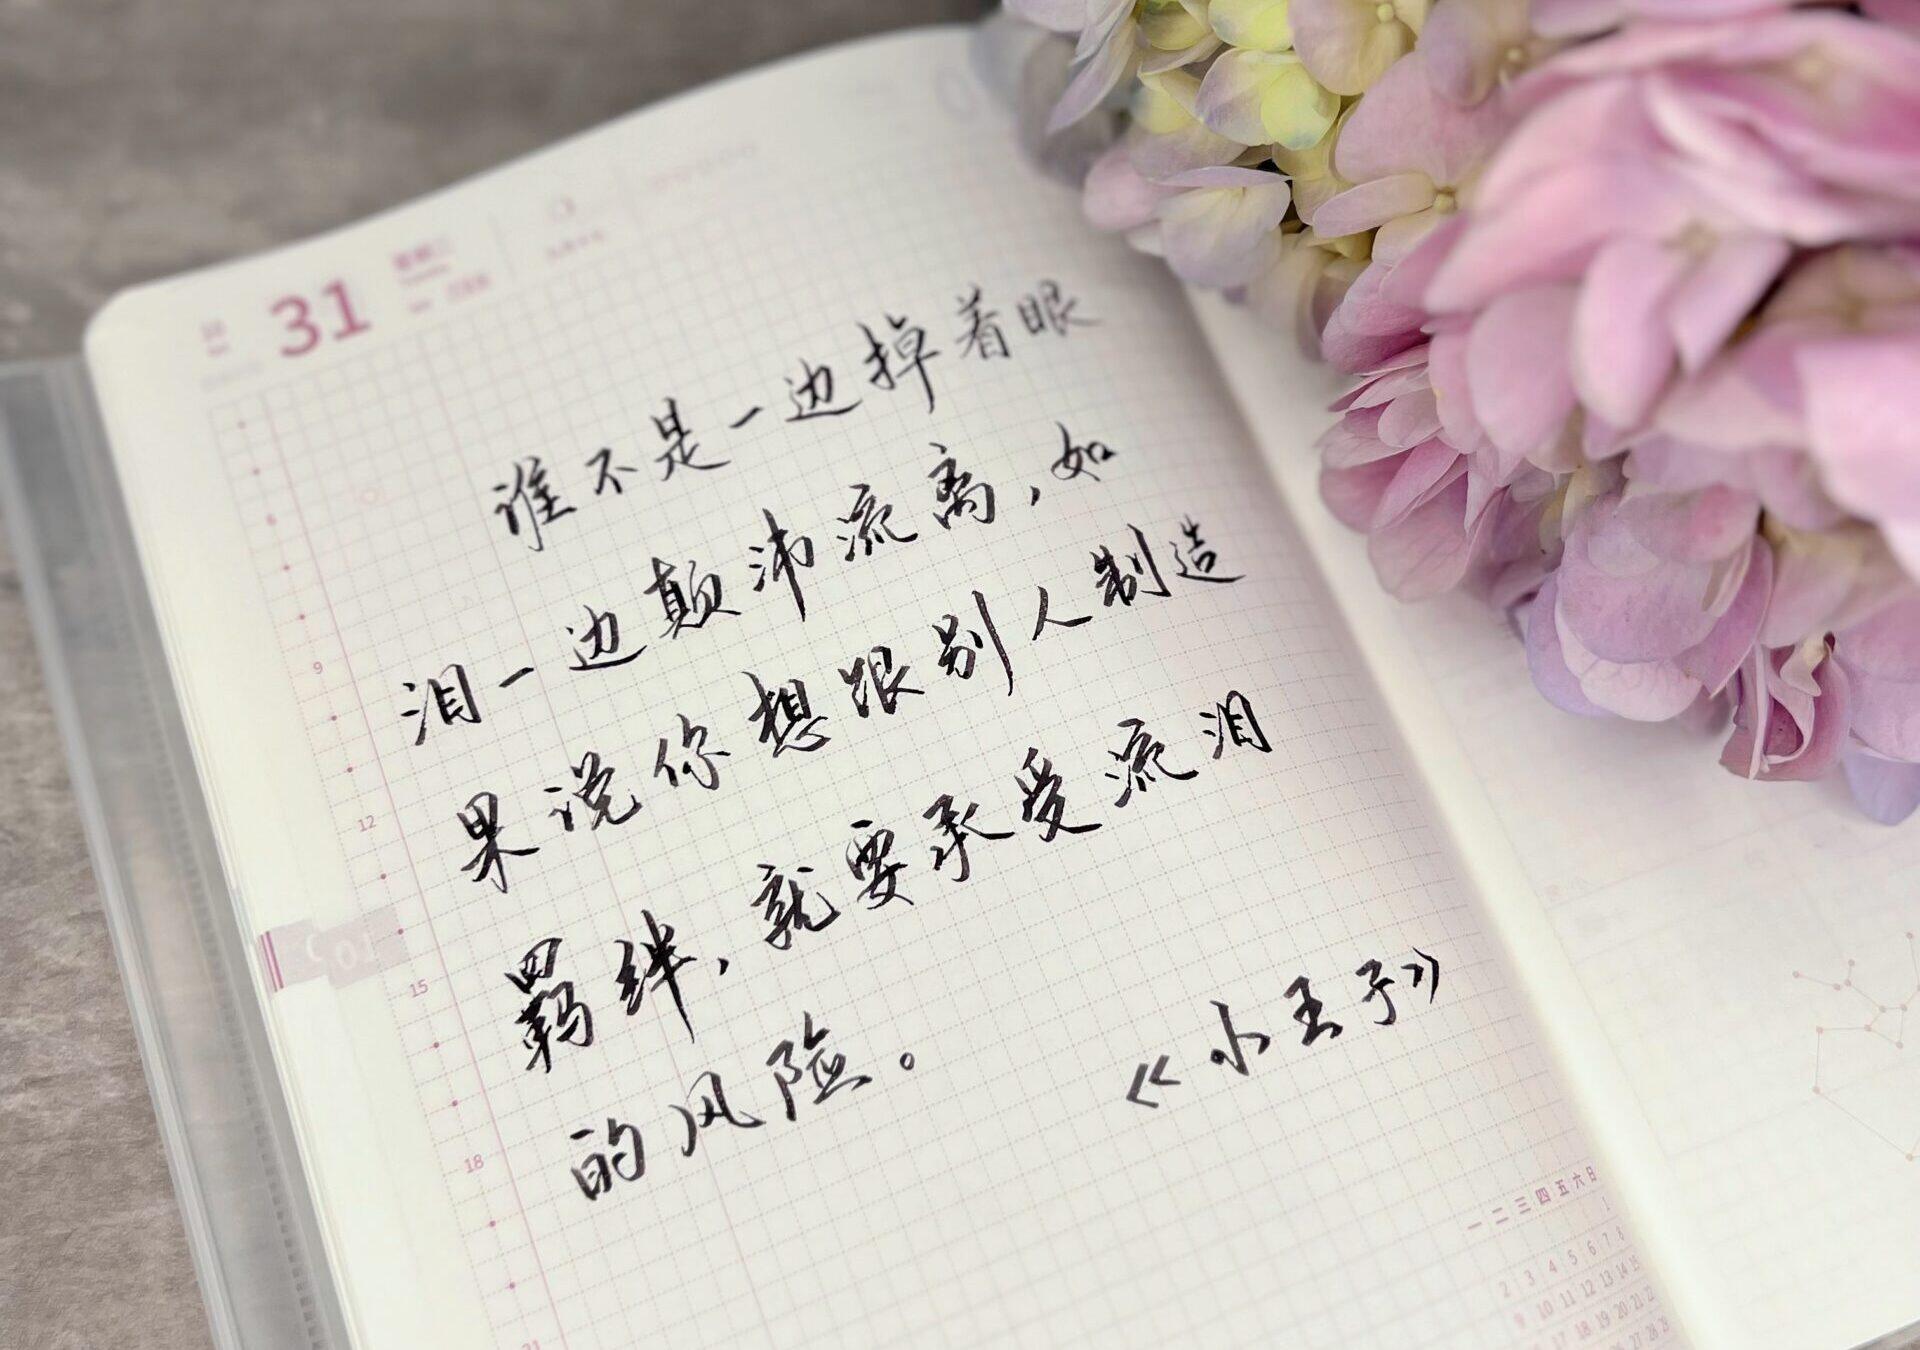 31
谁不是一边掉着眼
泪一边颠沛流离，如
果说你想跟别人制造
羁绊，就要承受流泪
的风险。
《小王子》
9
12
15
18
21
01
一 二 三 四 五 六 日
1
2 3 4 5 6 7 8
9 10 11 12 13 14 15